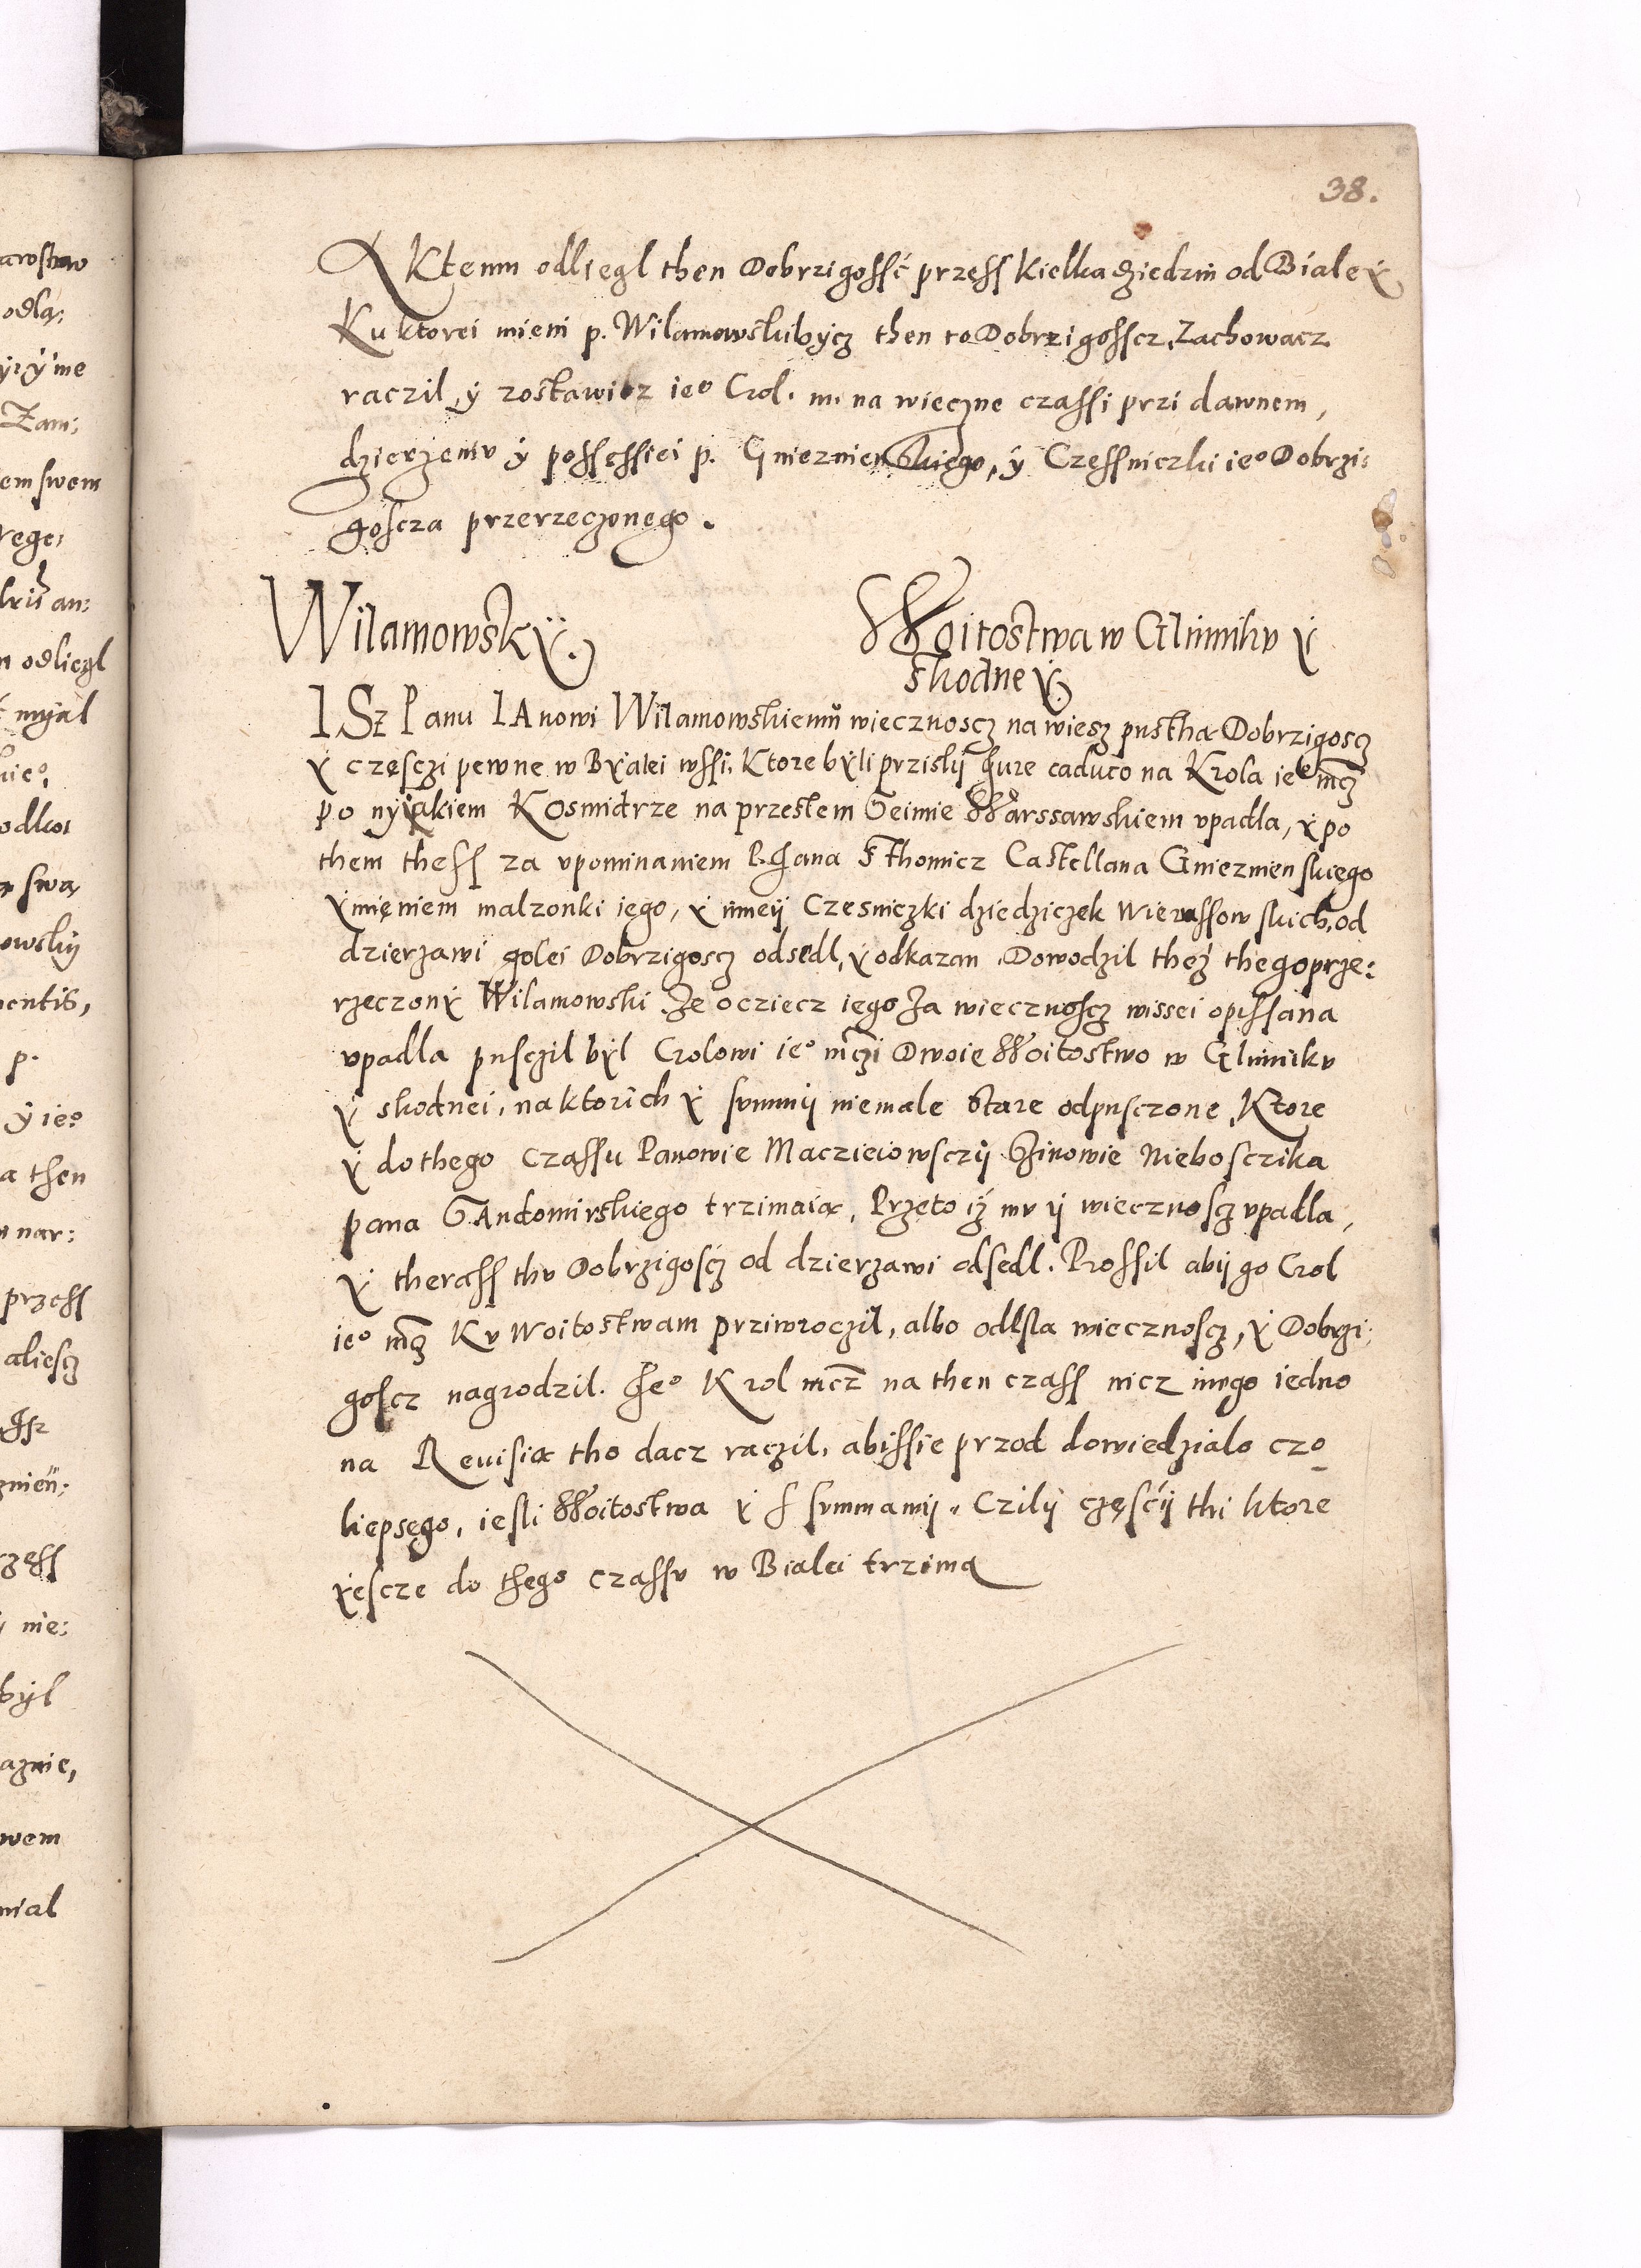 38.
A Ktemu odliegl then Dobrzigossć przess kielka dziedzin od Bialeÿ
Ku ktorei mieni p. Wilamowski bycz then to Dobrzigosscz, Zachowacz
raczil, ÿ zostawicz ieo Crol. m. na wieczne czassi przi dawnem,
dzierzeniv ÿ possessiei p. Gnieznienskiego, ÿ Częssniczki ieo Dobrzi:
goscza przerzeczonego.
Wilamowskÿ.
Woitostwa w Glinnikv ÿ
skodneÿ
ISz Panu IAnowi Wilamowskiemu wiecznoscz na wiesz pustha Dobrzigoscz
ÿ częsczi pewne w Bÿalei wssi, Ktore bÿli przislÿ Jure caduco na Krola ieo mcz
po nyiakiem Kosmidrze na przeslem Seimie Warssawskiem vpadla, ÿ po
them thess za vpominaniem P. Jana Sthomicz Castellana Gnieznienskiego
ÿmięniem malzonki iego, ÿ inneÿ Czesniczki dziedziczek Wierassowskich, od
dzierzawi golei Dobrzigoscz odsedl, ÿ odkazan. Dowodzil theż thego prze:
rzeczonÿ Wilamowski Ze oczciecz iego Za wiecznoscz wissei opissana
vpadla pusczil bÿl Crolowi ieo mczi Dwoie Woitostwo w Glinnikv
ÿ skodnei, na ktorich ÿ summÿ niemale stare odpusczone, Ktore
ÿ do thego Czassu Panowie Macziciowsczÿ Sinowie Niebosczika
pana SAndomirskiego trzimaia, Przeto iż mv ÿ wiecznoscz vpadla,
ÿ therass thv Dobrzigoścz od dzierzawi odsedl. Prossil abÿ go Crol
ieo mcz Kv Woitostwam prziwroczil, albo odesla wiecznoscz, ÿ Dobrzi:
goscz nagrodzil. Jeo Krol mcz na then czass nicz innego iedno
na Reuisia tho dacz raczil, abissie przod dowiedzialo czo
liepsęgo, iesli Woitostwa ÿ s summamÿ. Czilÿ częsćÿ thi ktore
ÿescze do thego czassv w Bialei trzima